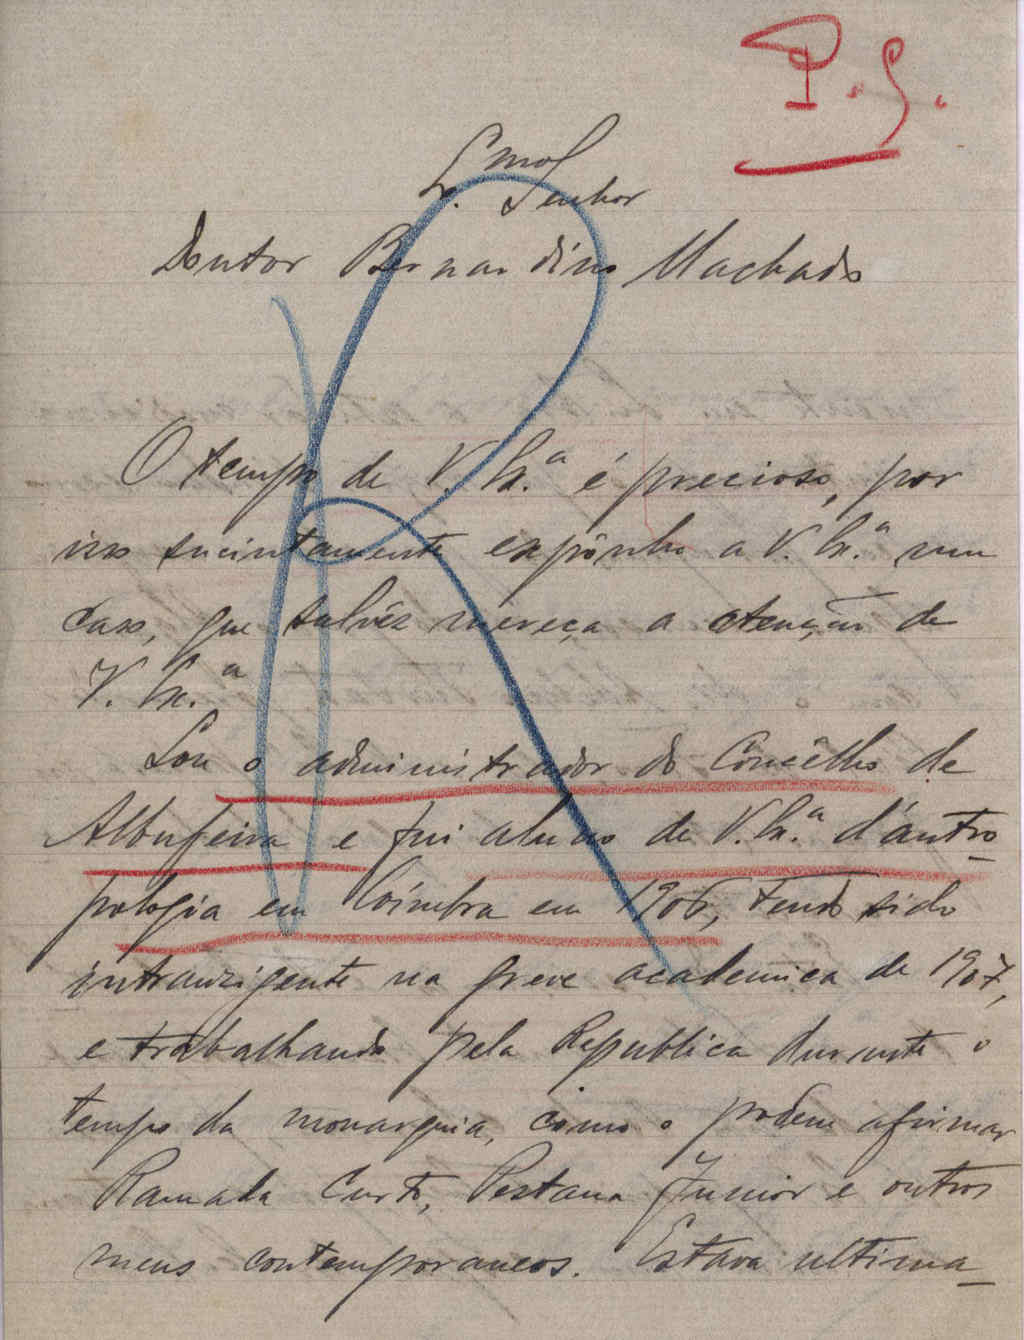 P. S.
Exmo
Sr. Senhor
Doutor Bernardino Machado
R
O tempo de V. Ex.ª é precioso, por
isso sucintamente expônho a V. Ex.ª um
caso, que talvêz mereça a atenção de
V. Ex.ª
Sou o administrador do Concêlho de
Albufeira e fui aluno de V. Ex.ª d'antro
pologia em Coimbra em 1906, tendo sido
intranzigente na greve academica de 1907,
e trabalhando pela Republica durante o
tempo da monarquia, como o podem afirmar
Ramada Curto, Pestana Junior e outros
meus contemporaneos. Estava ultima